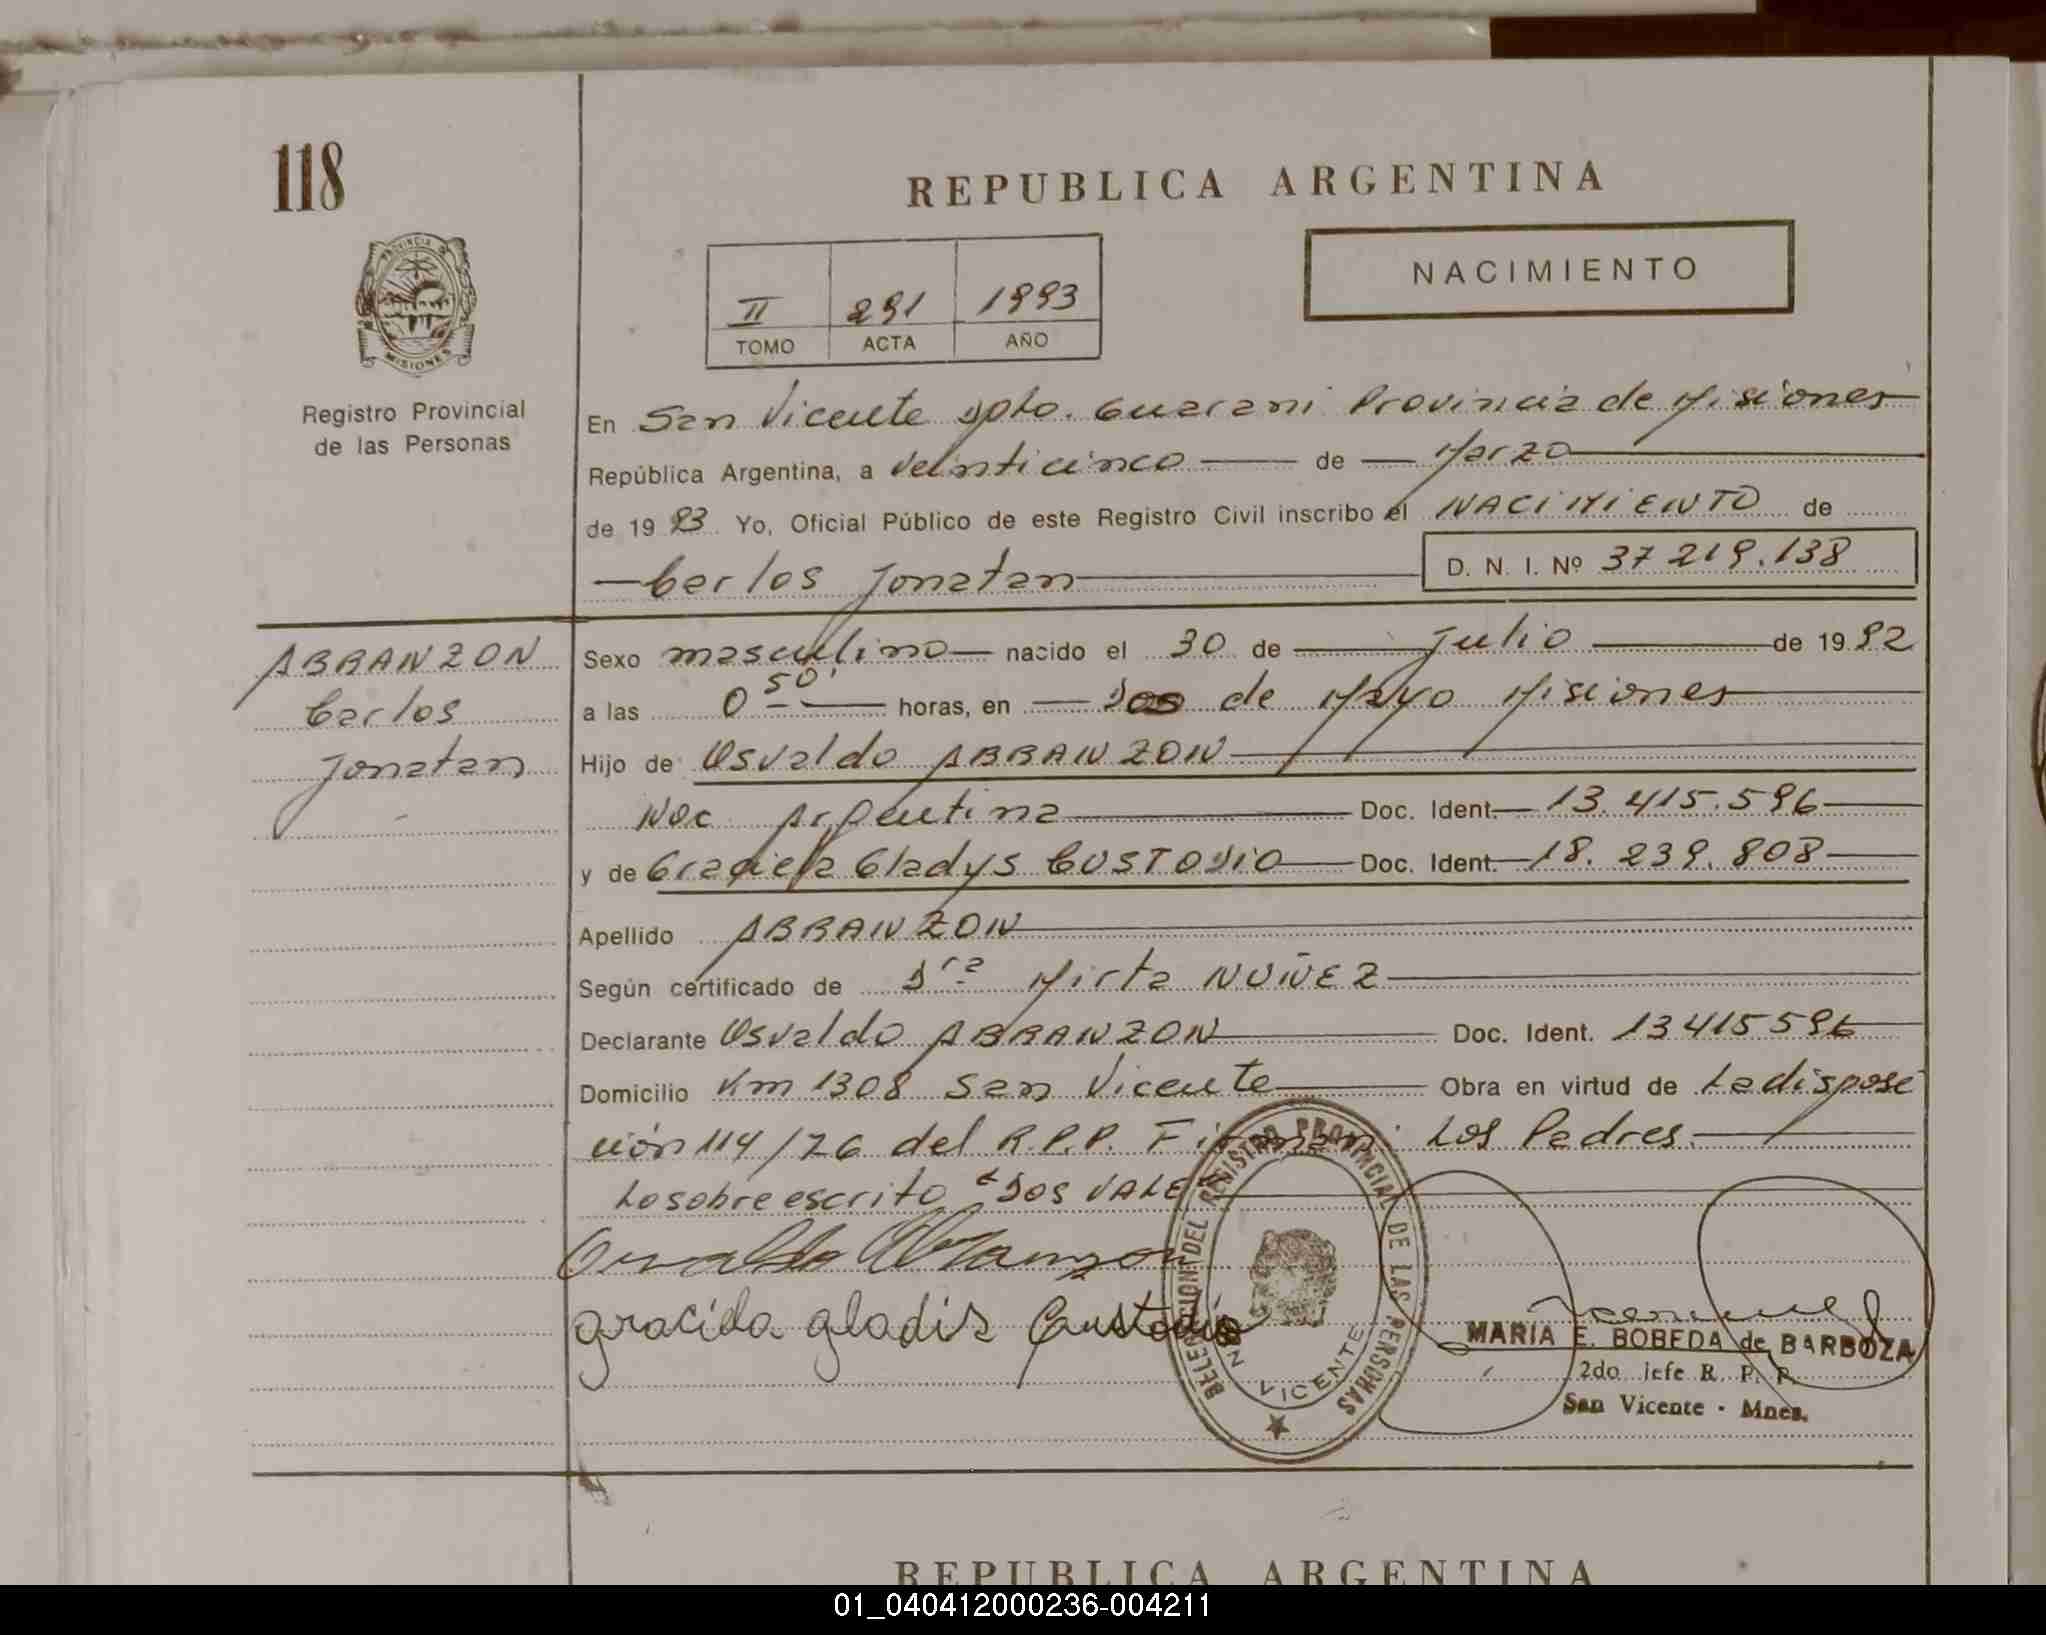 118
REPUBLICA ARGENTINA
PROVINCIA DE
MISIONES
Registro Provincial
de las Personas
NACIMIENTO
II 291 1993
TOMO ACTA AÑO
En San Vicente Dpto. Guarani Provincia de Misiones
República Argentina, a veinticinco de Marzo
de 1993 Yo, Oficial Público de este Registro Civil inscribo el NACIMIENTO de
Carlos Jonatan D. N. I. Nº 37 219.138
ABRANZON
Carlos
Jonatan
Sexo masculino nacido el 30 de Julio de 1992
a las 0 50' horas, en Dos de Mayo Misiones
Hijo de Osvaldo ABRANZON
Nac Argentina Doc. Ident. 13.415.596
y de Graciela Gladys CUSTODIO Doc. Ident. 18.239.808
Apellido ABRANZON
Según certificado de Dra Mirta NUÑEZ
Declarante Osvaldo ABRANZON Doc. Ident. 13415596
Domicilio Km 1308 San Vicente Obra en virtud de La disposi
ción 114/76 del R.P.P. Firman: Los Padres.
Lo sobreescrito "DOS VALE
Osvaldo Abranzon
graciela gladis Custodio
DEL REGISTRO PROVINCIAL DE LAS PERSONAS
VICENTE
MARIA E. BOBEDA de BARBOZA
2do jefe R. P. P.
San Vicente - Mnes.
REPUBLICA ARGENTINA
01_040412000236-004211